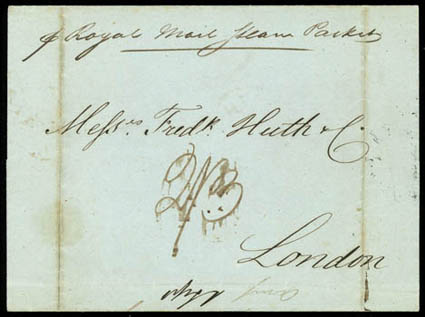 p Royal Mail Steam Packet
Messrs. Fredk. Huth & Co
2/3
London